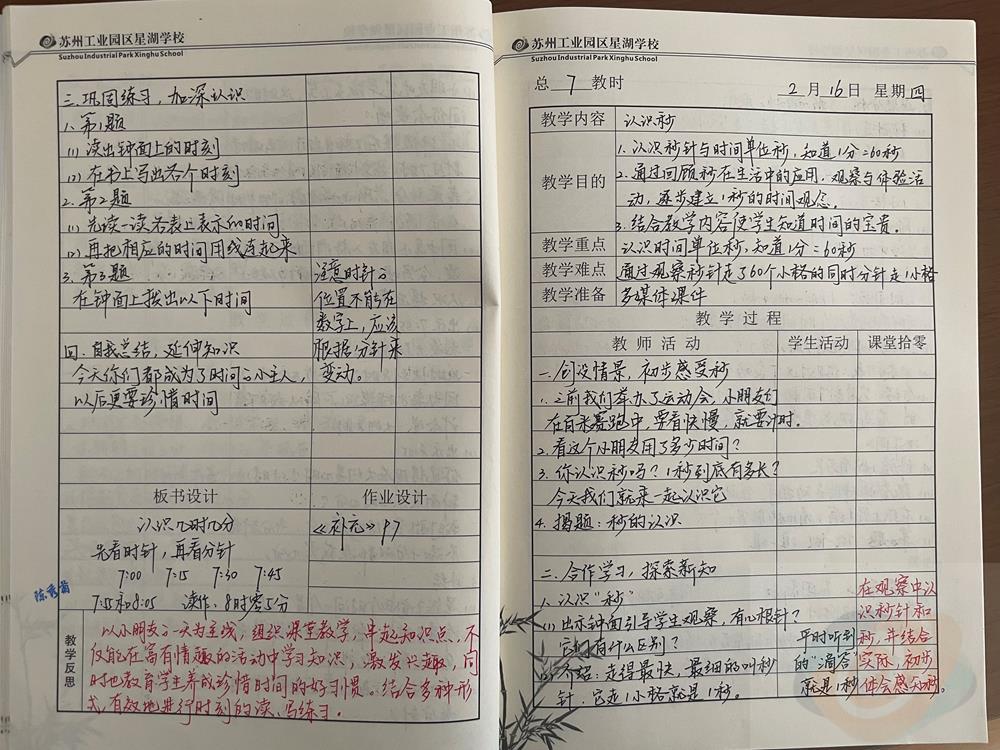 苏州工业园区星湖学校
Suzhou Industrial Park Xinghu School
三.巩固练习,加深认识
1.第1题
(1)读出钟面上的时刻
(2)在书上写出各个时刻
2.第2题
(1)先读一读各表上表示的时间
(2)再把相应的时间用线连起来
3.第3题
在钟面上拨出以下时间
注意时针的
位置不能在
数字上,应该
根据分针来
变动。
四.自我总结,延伸知识
今天你们都成为了时间的小主人,
以后更要珍惜时间
板书设计
作业设计
认识几时几分
先看时针,再看分针
7:00 7:15 7:30 7:45
7:55和8:05 读作:8时零5分
《补充》P7
教学反思
以小朋友的一天为主线,组织课堂教学,串起知识点,不
仅能在富有情趣的活动中学习知识,激发兴趣,同
时也教育学生养成珍惜时间的好习惯。结合多种形
式,有效地进行时刻的读、写练习。
苏州工业园区星湖学校
Suzhou Industrial Park Xinghu School
总 7 教时
2月16日 星期四
教学内容 认识秒
教学目的
1.认识秒针与时间单位秒,知道1分=60秒
2.通过回顾秒在生活中的应用,观察与体验活
动,逐步建立1秒的时间观念。
3.结合教学内容使学生知道时间的宝贵。
教学重点 认识时间单位秒,知道1分=60秒
教学难点 通过观察秒针走了60个小格的同时分针走1小格
教学准备 多媒体课件
教学过程
教师活动 学生活动 课堂拾零
一.创设情景,初步感受秒
1.之前我们举办了运动会,小朋友们
在百米赛跑中,要看快慢,就要计时。
2.看这个小朋友用了多少时间?
3.你认识秒吗?1秒到底有多长?
今天我们就来一起认识它
4.揭题:秒的认识
二.合作学习,探索新知
1.认识“秒”
(1)出示钟面引导学生观察,有几根针?
它们有什么区别?
(2)介绍:走得最快,最细的叫秒
针,它走1小格就是1秒。
平时听到
的“滴答”
就是1秒
在观察中认
识秒针和
秒,并结合
实际,初步
体会感知秒。